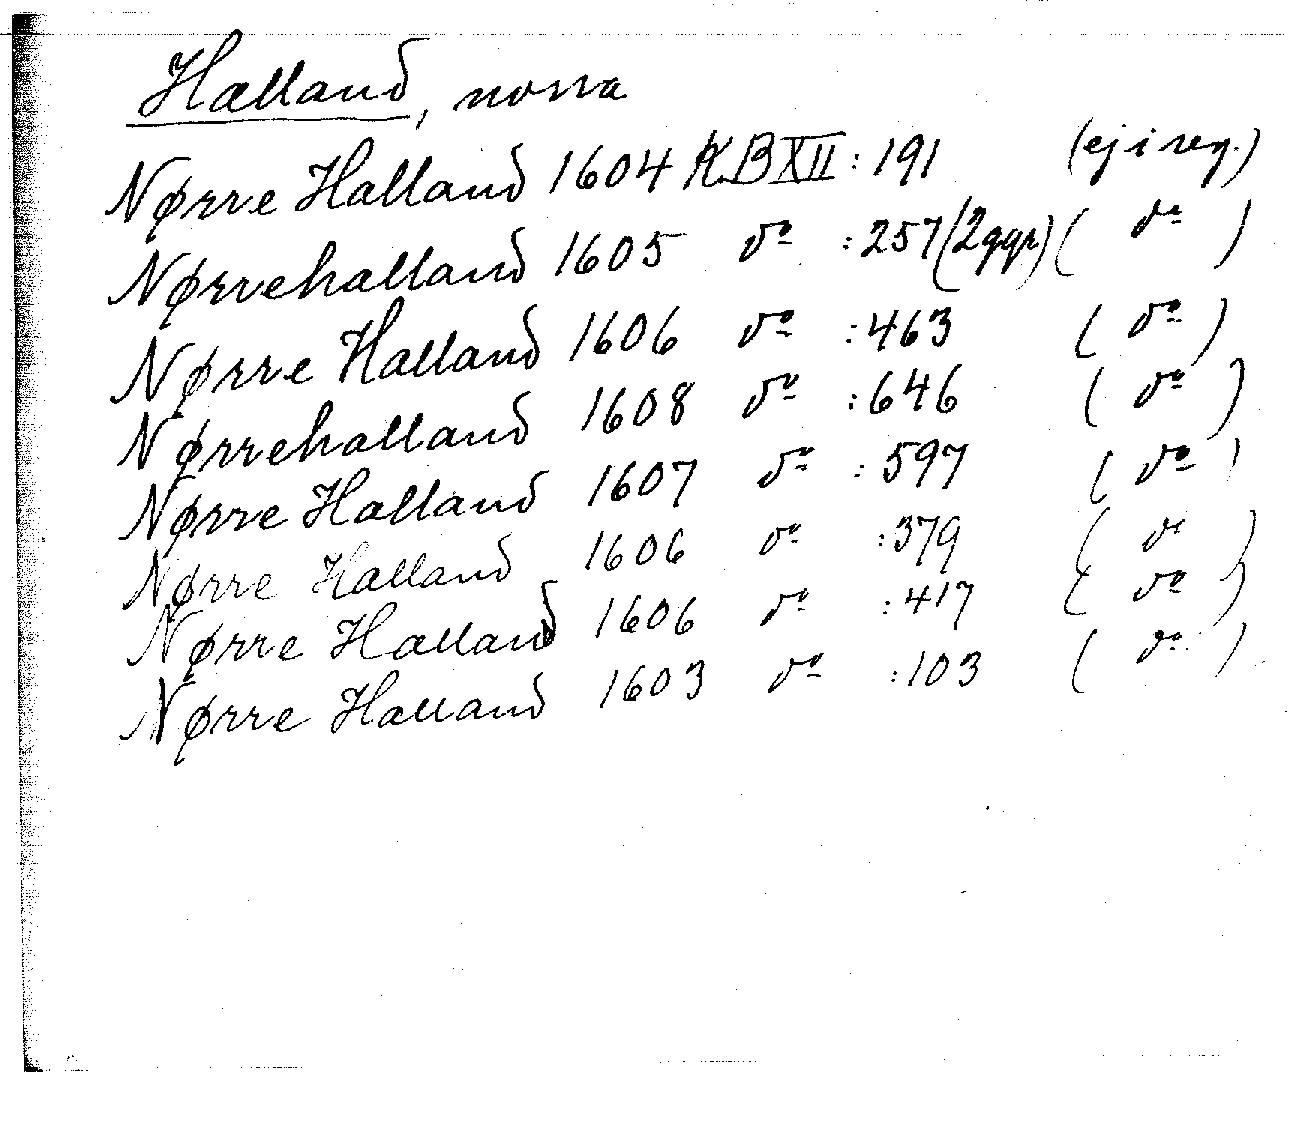 Halland, norra
Nørre Halland 1604 KB XII : 191 (ej i reg.)
Nørrehalland 1605 dº : 257 (2 ggr) ( dº )
Nørre Halland 1606 dº : 463 ( dº )
Nørrehalland 1608 dº : 646 ( dº )
Nørre Halland 1607 dº : 597 ( dº )
Nørre Halland 1606 dº : 379 ( dº )
Nørre Halland 1606 dº : 417 ( dº )
Nørre Halland 1603 dº : 103 ( dº )